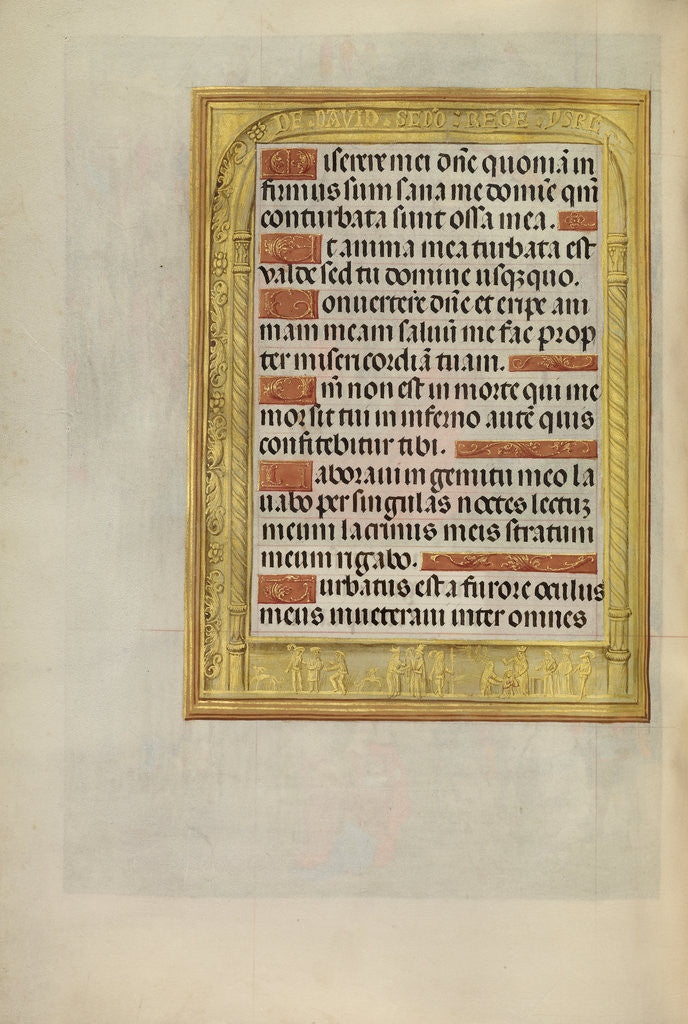 DE · DAVID · SEDO · REGE · YSRL
Miserere mei dn̄e quoniā in
firmus sum sana me domine qm̄
conturbata sunt ossa mea.
Et anima mea turbata est
valde sed tu domine usqꝫ quo.
Conuertere dn̄e et eripe ani
mam meam saluū me fac prop
ter misericordiā tuam.
Qm̄ non est in morte qui me
mor sit tui in inferno autē quis
confitebitur tibi.
Laboraui in gemitu meo la
uabo per singulas noctes lectuꝫ
meum lacrimis meis stratum
meum rigabo.
Turbatus est a furore oculus
meus inueteraui inter omnes